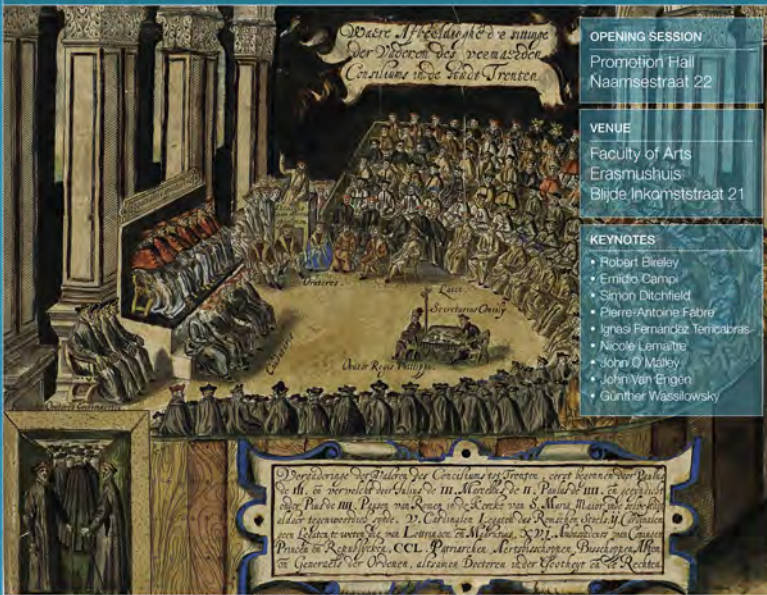 Waere Afbeeldinghe d'e sittinge
der Vaderen des vermaerden
Consiliums in de stadt Trenten
OPENING SESSION
Promotion Hall
Naamsestraat 22
VENUE
Faculty of Arts
Erasmushuis
Blijde Inkomststraat 21
KEYNOTES
• Robert Bireley
• Emidio Campi
• Simon Ditchfield
• Pierre-Antoine Fabre
• Ignasi Fernández Terricabras
• Nicole Lemaître
• John O'Malley
• John Van Engen
• Günther Wassilowsky
Oratores
Lector
Secretarius Concilij
Orator Regis Philippi
Vergaderinge der Vaderen des Conciliums tot Trenten, eerst begonnen door Paulus
de III. en vervolcht door Julius de III. Marcellus de II. Paulus de IIII. en geeyndicht
onder Pius de IIII. Pausen van Romen in de Kercke van S. Maria Maior
aldaer tegenwoordich synde, V. Cardinalen Legaten des Roomschen Stoels, ij Cardinalen
geen Legaten te weten die van Lottringen en Madrutius, XVI. Ambassadeurs van Coningen
Princen en Republycken, CCL. Patriarchen Aertsbisschoppen, Bisschoppen, Abten
en Generaels der Ordenen, altsamen Doctoren in der Godtheyt en de Rechten